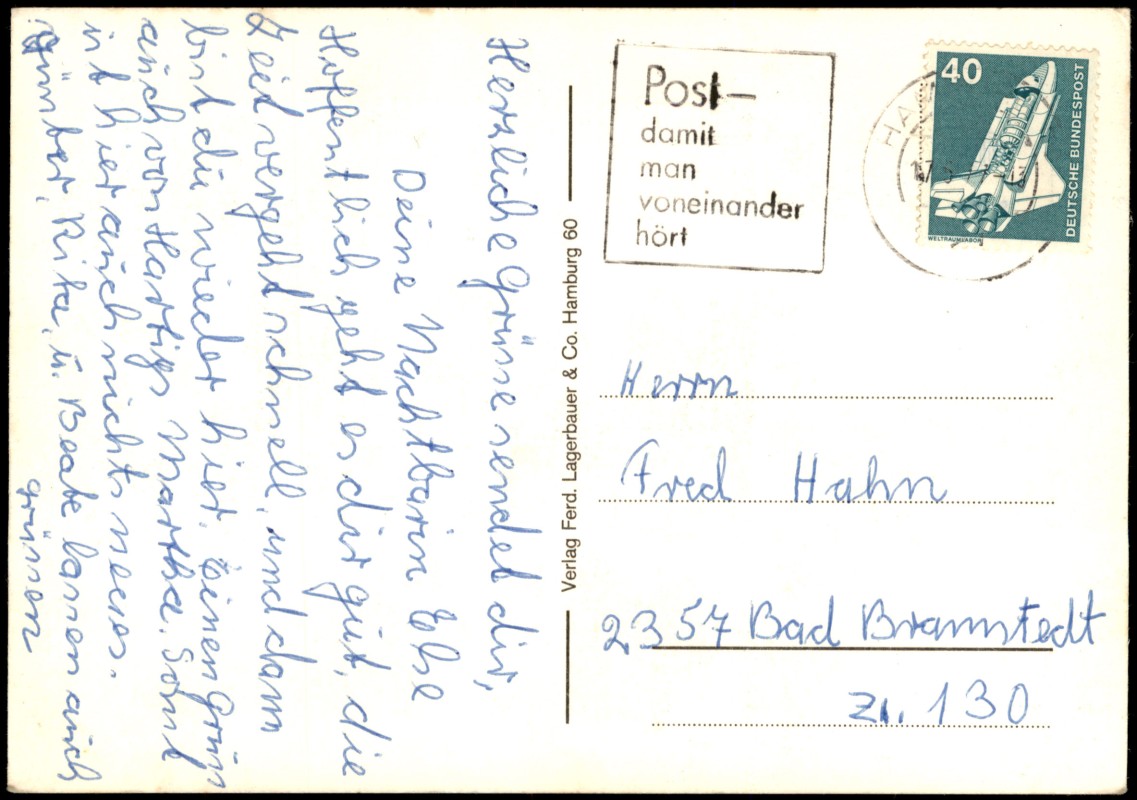 Herzliche Grüsse sendet dir,
Deine Nachtbarin Else
Hoffentlich geht es dir gut, die
Zeit vergeht schnell, und dann
bist du wieder hier. Einen Gruss
auch von Hartigs Martha. Sonst
ist hier auch nichts neues.
Günter, Rita, u. Beate lassen auch
grüssen
Verlag Ferd. Lagerbauer & Co. Hamburg 60
Post-
damit
man
voneinander
hört
40
DEUTSCHE BUNDESPOST
WELTRAUMLABOR
HA
Herrn
Fred Hahn
2357 Bad Bramstedt
Zi. 130